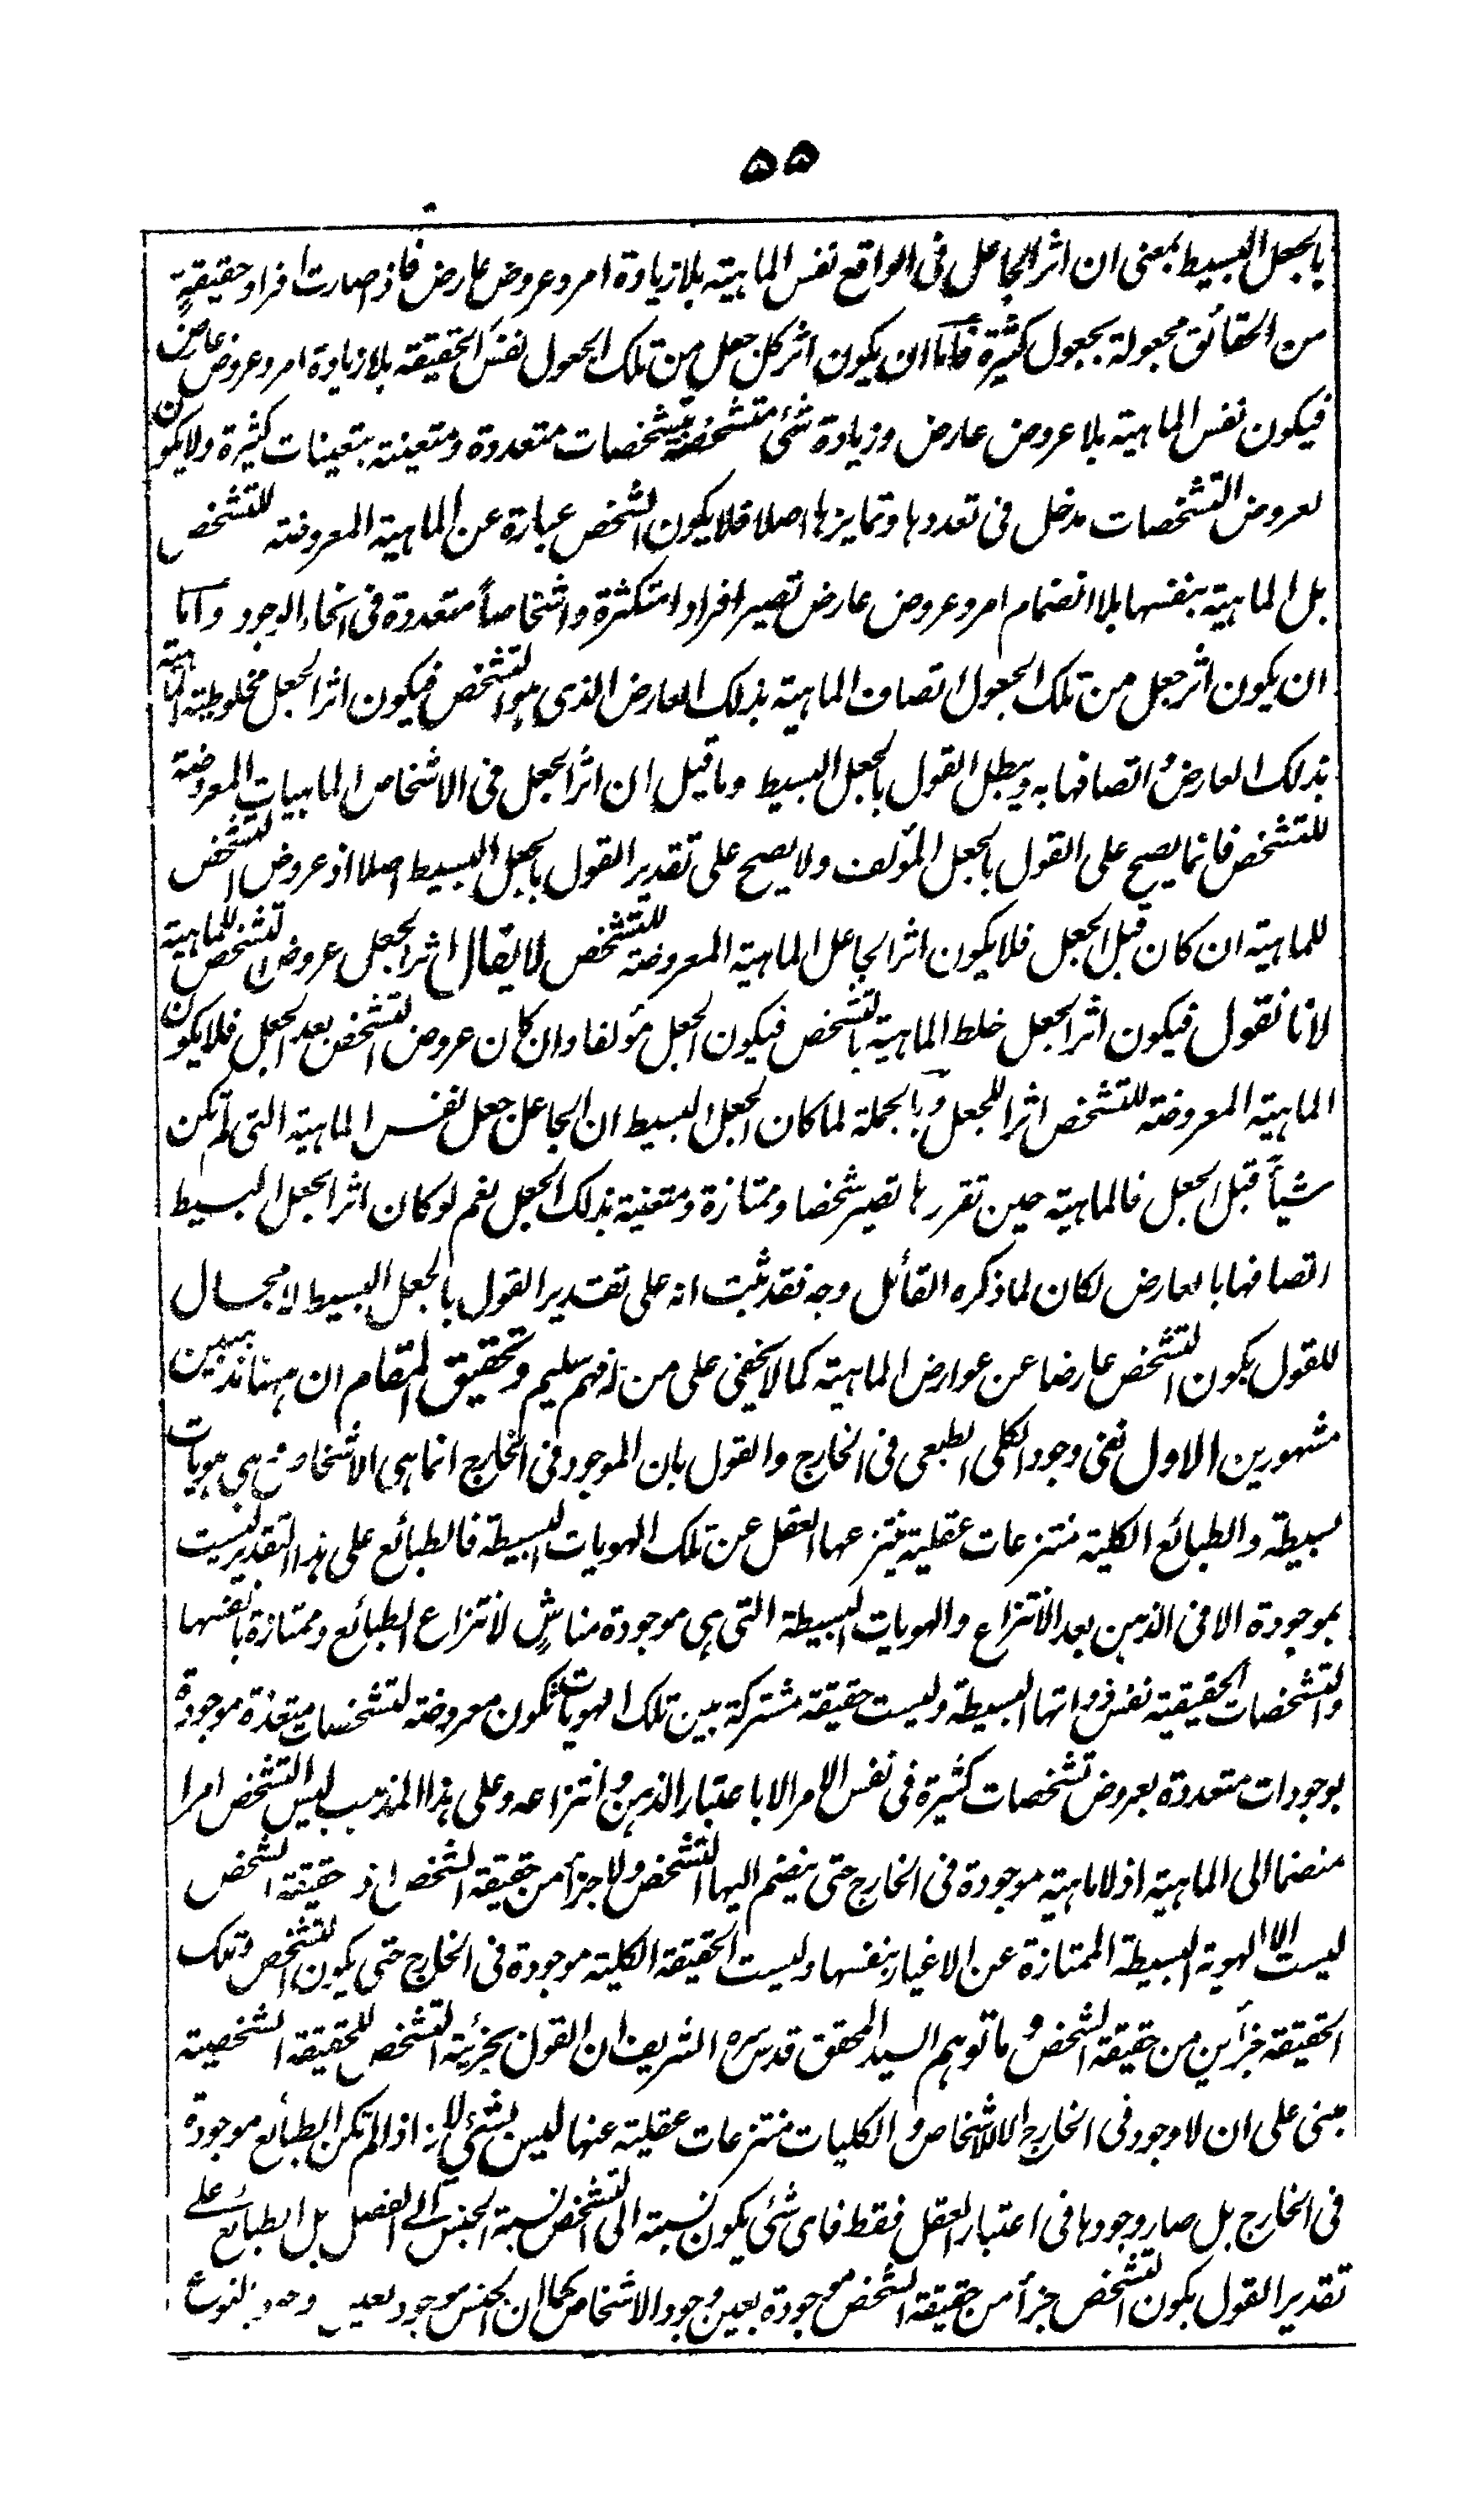 ۵۵
بالجعل البسيط بمعنى ان اثر الجاعل فى الواقع نفس الماهية بلا زيادة امر وعروض عارض فاذا صارت افراد حقيقة
من الحقائق مجعولة بجعول كثيرة فاما ان يكون اثر كل جعل من تلك الجعول نفس الحقيقة بلا زيادة امر وعروض عارض
فيكون نفس الماهية بلا عروض عارض وزيادة شئ متشخصة بتشخصات متعددة ومتعينة بتعينات كثيرة ولا يكون
لعروض التشخصات مدخل فى تعددها وتمايزها اصلا فلا يكون الشخص عبارة عن الماهية المعروضة للتشخص
بل الماهية بنفسها بلا انضمام امر وعروض عارض تصير افرادا متكثرة واشخاصاً متعددة فى انحاء الوجود واما
ان يكون اثر جعل من تلك الجعول اتصاف الماهية بذلك العارض الذى هو التشخص فيكون اثر الجعل مخلوطية الماهية
بذلك العارض واتصافها به ويبطل القول بالجعل البسيط وما قيل ان اثر الجعل فى الاشخاص الماهيات المعروضة
للتشخص فانما يصح على القول بالجعل المؤلف ولا يصح على تقدير القول بالجعل البسيط اصلا اذ عروض التشخص
للماهية ان كان قبل الجعل فلا يكون اثر الجاعل الماهية المعروضة للتشخص لا يقال اثر الجعل عروض التشخص للماهية
لانا نقول فيكون اثر الجعل خلط الماهية بالتشخص فيكون الجعل مؤلفا وان كان عروض التشخص بعد الجعل فلا يكون
الماهية المعروضة للتشخص اثرا للجعل وبالجملة لما كان الجعل البسيط ان الجاعل جعل نفس الماهية التى لم تكن
شيأً قبل الجعل فالماهية حين تقررها تصير شخصا وممتازة ومتعينة بذلك الجعل نعم لو كان اثر الجعل البسيط
اتصافها بالعارض لكان لما ذكره القائل وجه فقد ثبت انه على تقدير القول بالجعل البسيط لا مجال
للقول بكون التشخص عارضا عن عوارض الماهية كما لا يخفى على من له فهم سليم وتحقيق المقام ان ههنا مذهبين
مشهورين الاول نفى وجود الكلى الطبعى فى الخارج والقول بان الموجود فى الخارج انما هى الاشخاص وهى هويات
بسيطة والطبائع الكلية منتزعات عقلية ينتزعها العقل عن تلك الهويات البسيطة فالطبائع على هذا التقدير ليست
بموجودة الا فى الذهن بعد الانتزاع والهويات البسيطة التى هى موجودة مناشٍ لانتزاع الطبائع وممتازة بانفسها
والتشخصات الحقيقية نفس ذواتها البسيطة وليست حقيقة مشتركة بين تلك الهويات تكون معروضة لتشخصات متعددة موجودة
بوجودات متعددة بعروض تشخصات كثيرة فى نفس الامر الا باعتبار الذهن وانتزاعه وعلى هذا المذهب ليس التشخص امرا
منضما الى الماهية اذ لا ماهية موجودة فى الخارج حتى ينضم اليها التشخص ولا جزأ من حقيقة الشخص اذ حقيقة الشخص
ليست الا الهوية البسيطة الممتازة عن الاغيار بنفسها وليست الحقيقة الكلية موجودة فى الخارج حتى يكون التشخص وتلك
الحقيقة جزأين من حقيقة الشخص وما توهم السيد المحقق قدس سره الشريف ان القول بجزئية التشخص للحقيقة الشخصية
مبنى على ان لا وجود فى الخارج الا للاشخاص والكليات منتزعات عقلية عنها ليس بشئ لانه اذا لم تكن الطبائع موجودة
فى الخارج بل صار وجودها فى اعتبار العقل فقط فاى شئ يكون نسبته الى التشخص نسبة الجنس الى الفصل بل الطبائع على
تقدير القول بكون التشخص جزأ من حقيقة الشخص موجودة بعين وجود الاشخاص كما ان الجنس موجود بعين وجود النوع